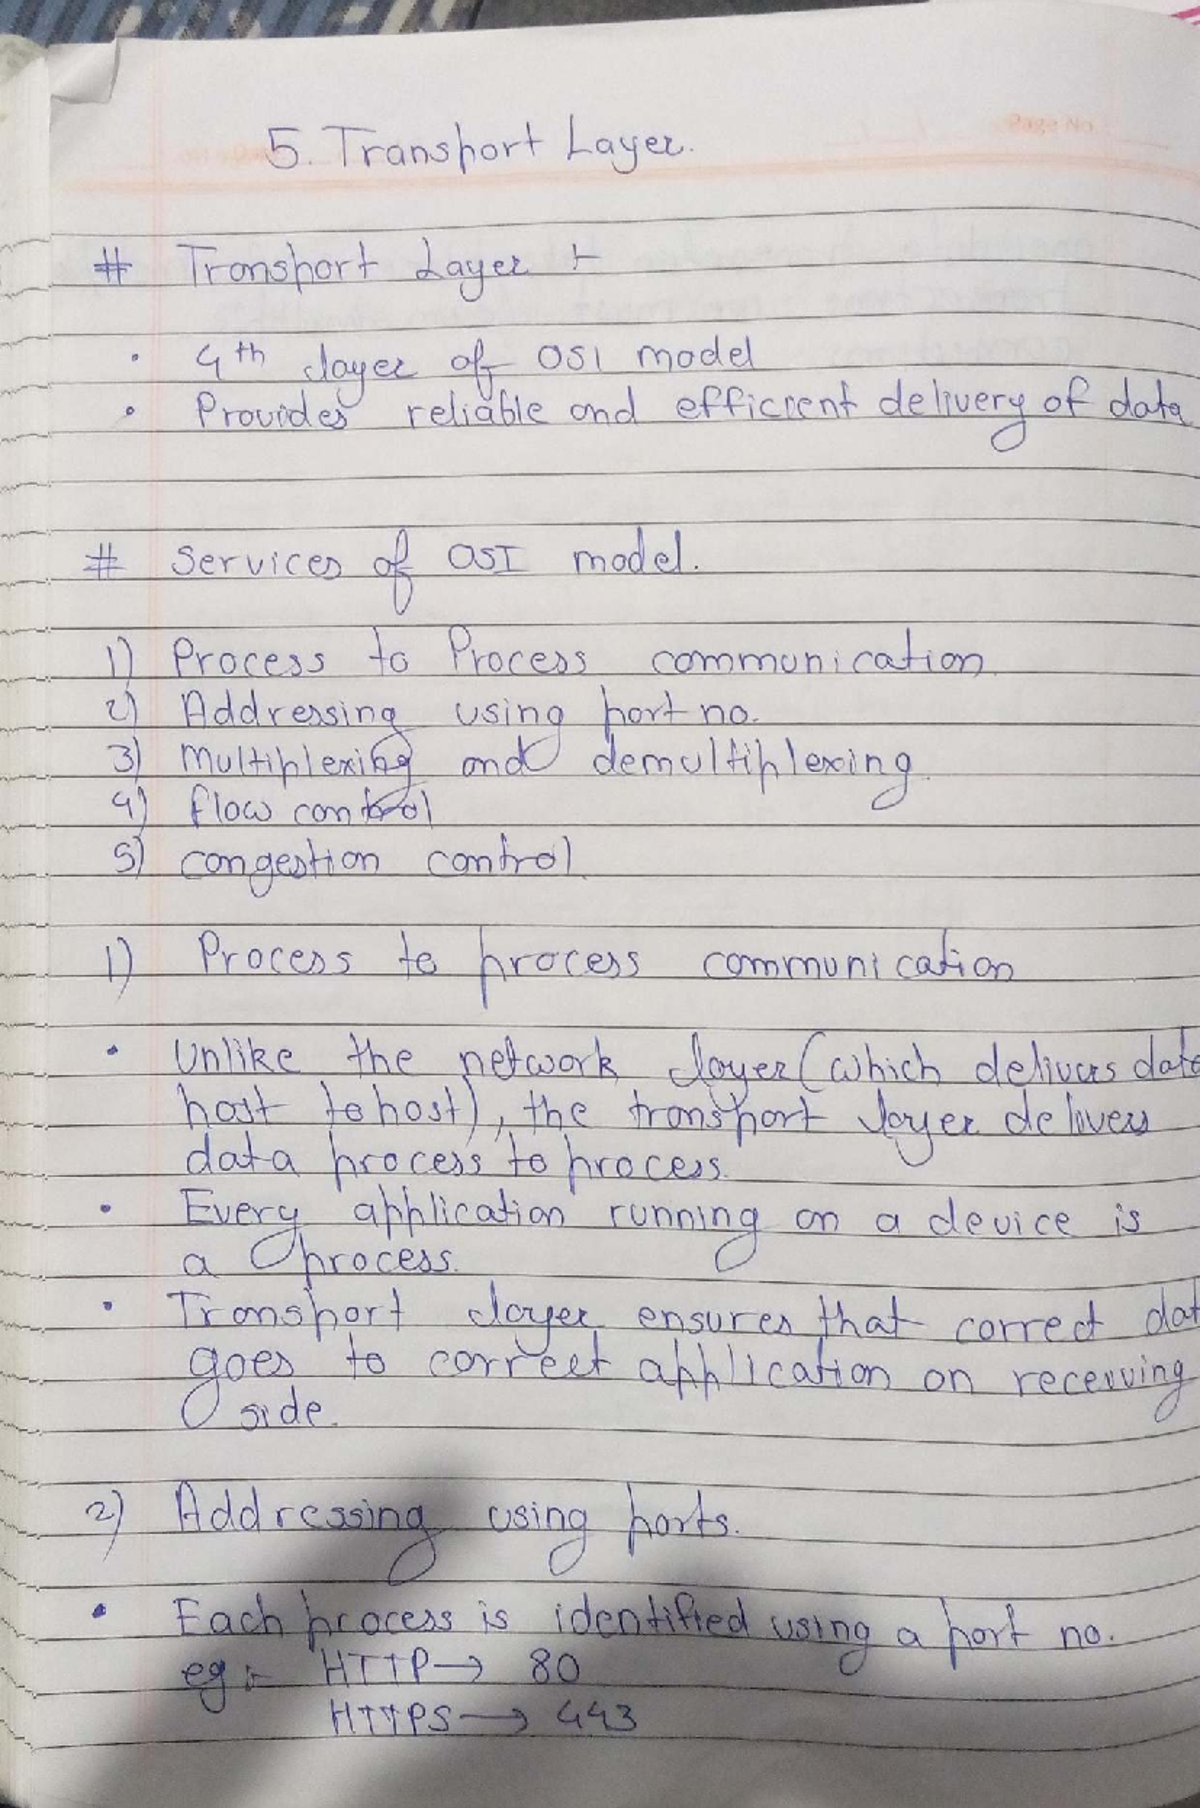 5. Transport Layer.
# Transport Layer :-
• 4th layer of OSI model
• Provides reliable and efficient delivery of data
# Services of OSI model.
1) Process to Process communication
2) Addressing using port no.
3) Multiplexing and demultiplexing
4) flow control
5) congestion control
1) Process to process communication
• Unlike the network layer (which delivers data
host to host), the transport layer delivers
data process to process.
• Every application running on a device is
a process.
• Transport layer ensures that correct dat
goes to correct application on receiving
side.
2) Addressing using ports.
• Each process is identified using a port no.
eg :- HTTP → 80
HTTPS → 443